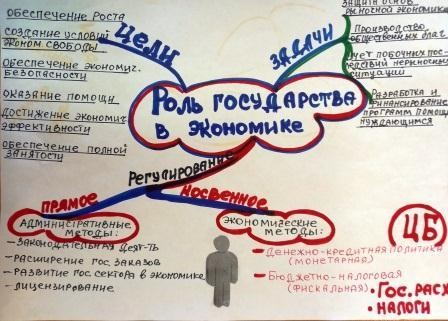 Обеспечение роста
создание условий
эконом свободы
Обеспечение экономич.
безопасности
оказание помощи
достижение экономич
эффективности
обеспечение полной
занятости
Цели
Задачи
защита основ
рыночной экономики
Производство
общественных благ
Учет побочных пос-
ледствий нерыночн.
ситуации
Разработка и
финансирование
программ помощи
нуждающимся
Роль государства
в экономике
Регулирование
прямое
косвенное
Административные
методы:
- законодательная деят-ть
- расширение гос. заказов
- развитие гос. сектора в экономике
- лицензирование
экономические
методы:
- Денежно-кредитная политика
(монетарная)
- Бюджетно-налоговая
(фискальная)
ЦБ
• Гос. расх
• налоги